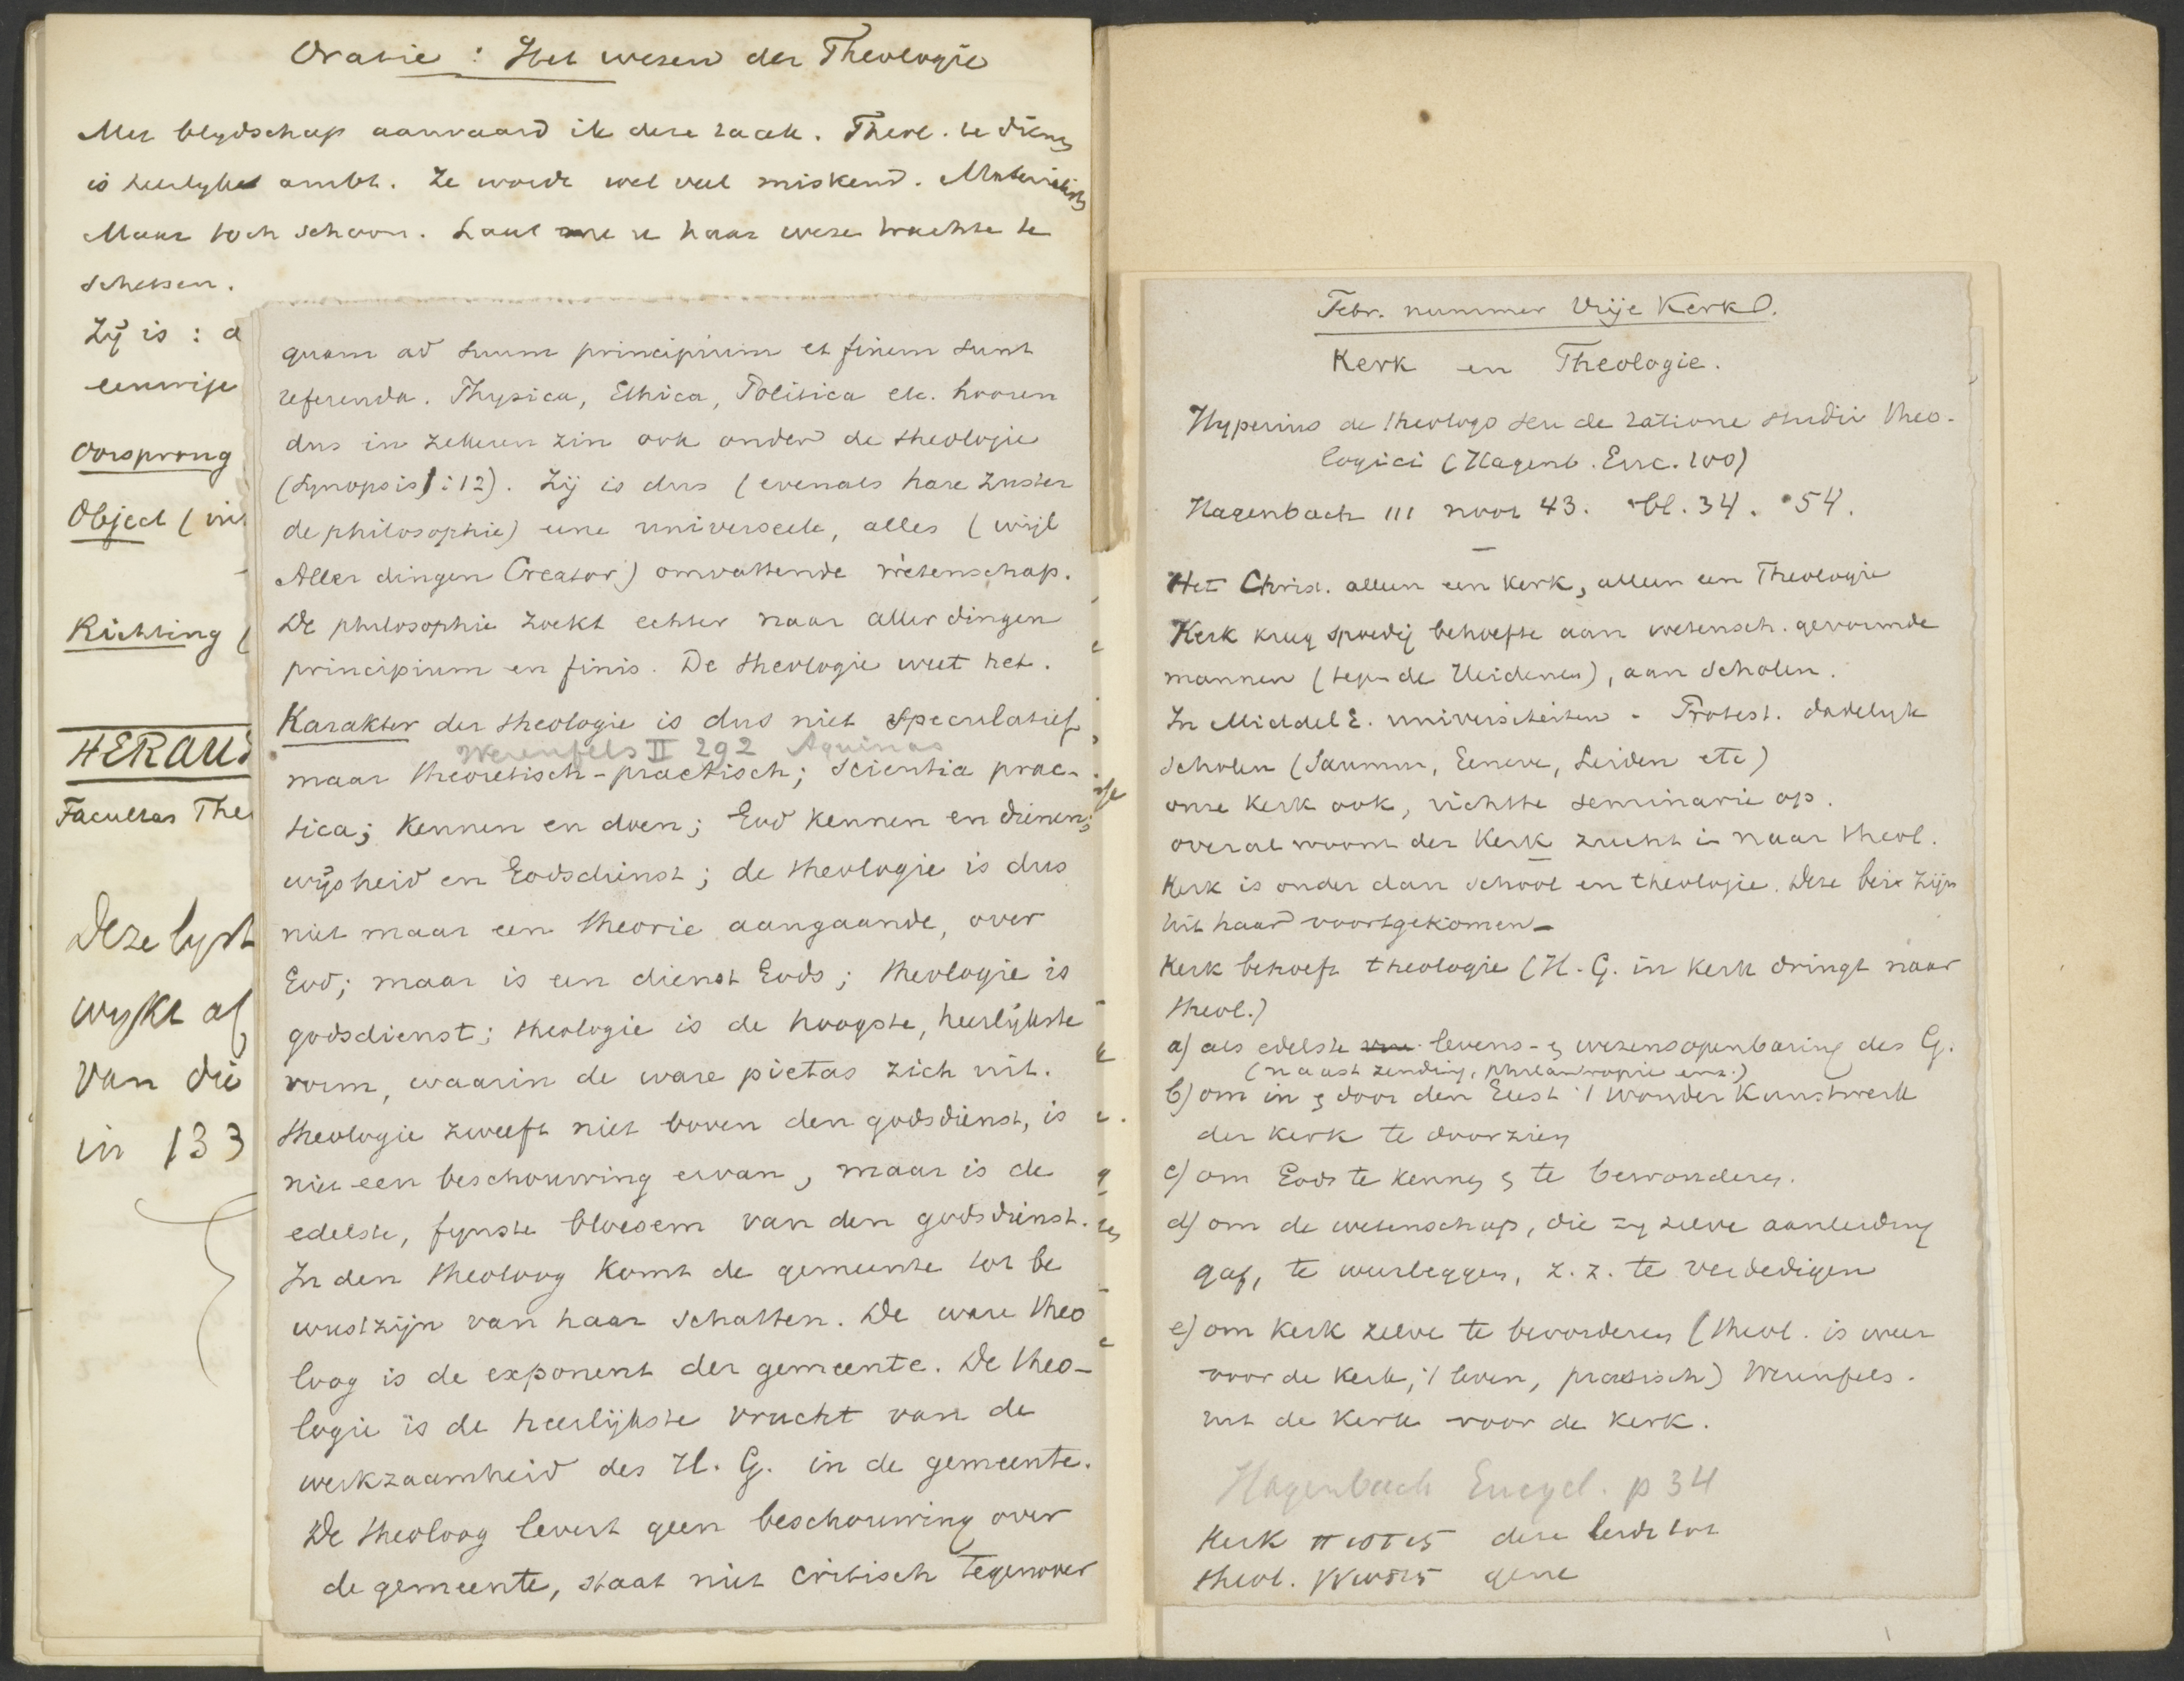 Oratie : Het wesen der Theologie
Met blydschap aanvaard ik deze taak. Theol. te dienen
is heerlyket ambt. Ze wordt wel veel miskend. Materialisten
Maar toch schoon. Laat me u haar weze trachte te
schetsen.
Zij is : a
eeuwige
Oorsprong
Object (
Richting (
HERAUT
Facultas The
Deze lyst
wykt af
van die
in 133
quam ad suum principium et finem sunt
referenda. Physica, Ethica, Politica etc. hooren
dus in zekeren zin ook onder de theologie
(Synopsis 1:12). Zij is dus (evenals hare zuster
de philosophie) eene universeele, alles (wijl
Aller dingen Creator) omvattende wetenschap.
De philosophie zoekt echter naar aller dingen
principium en finis. De theologie weet het.
Karakter der theologie is dus niet speculatief
Werenfels II 292 Aquinas
maar theoretisch-practisch; scientia prac-
tica; Kennen en doen; God kennen en dienen;
wijsheid en Godsdienst; de theologie is dus
niet maar een theorie aangaande, over
God; maar is een dienst Gods; theologie is
godsdienst; theologie is de hoogste, heerlijkste
vorm, waarin de ware pietas zich uit.
theologie zweeft niet boven den godsdienst, is
niet een beschouwing ervan, maar is de
edelste, fynste bloesem van den godsdienst.
In den theoloog komt de gemeente tot be
wustzijn van haar schatten. De ware theo
loog is de exponent der gemeente. De theo-
logie is de heerlijkste vrucht van de
werkzaamheid des H. G. in de gemeente.
De theoloog levert geen beschouwing over
de gemeente, staat niet critisch tegenover
Febr. nummer Vrije Kerk.
Kerk en Theologie.
Hyperius de theologo seu de ratione studii theo-
logici (Hagenb. Enc. 100)
Hagenbach III noot 43. bl. 34. 54.
Het Christ. alleen een Kerk, alleen een Theologie
Kerk kreeg spoedig behoefte aan wetensch. gevormde
mannen (tegen de Heidenen), aan scholen.
In Middel E. universiteiten - Protest. dadelyk
scholen (Saumur, Geneve, Leiden etc)
onze Kerk ook, richtte seminarie op.
overal woont der Kerk zucht in naar theol.
Kerk is ouder dan school en theologie. Deze beide zijn
uit haar voortgekomen-
Kerk behoeft theologie (H. G. in kerk dringt naar
theol.)
a) als edelste levens- en wezensopenbaring des G.
(naast zending, philantropie enz.)
b) om in en door den Geest 't wonder Kunstwerk
der Kerk te doorzien
c) om Gods te kennen en te bewonderen.
d) om de wetenschap, die zy zelve aanleiding
gaf, te weerleggen, z. z. te verdedigen
e) om Kerk zelve te bevorderen (theol. is weer
voor de Kerk, 't leven, practisch) Werenfels.
uit de Kerk voor de Kerk.
Hagenbach Encycl. p 34
Kerk πιστις deze leidt tot
theol. γνωσις gene